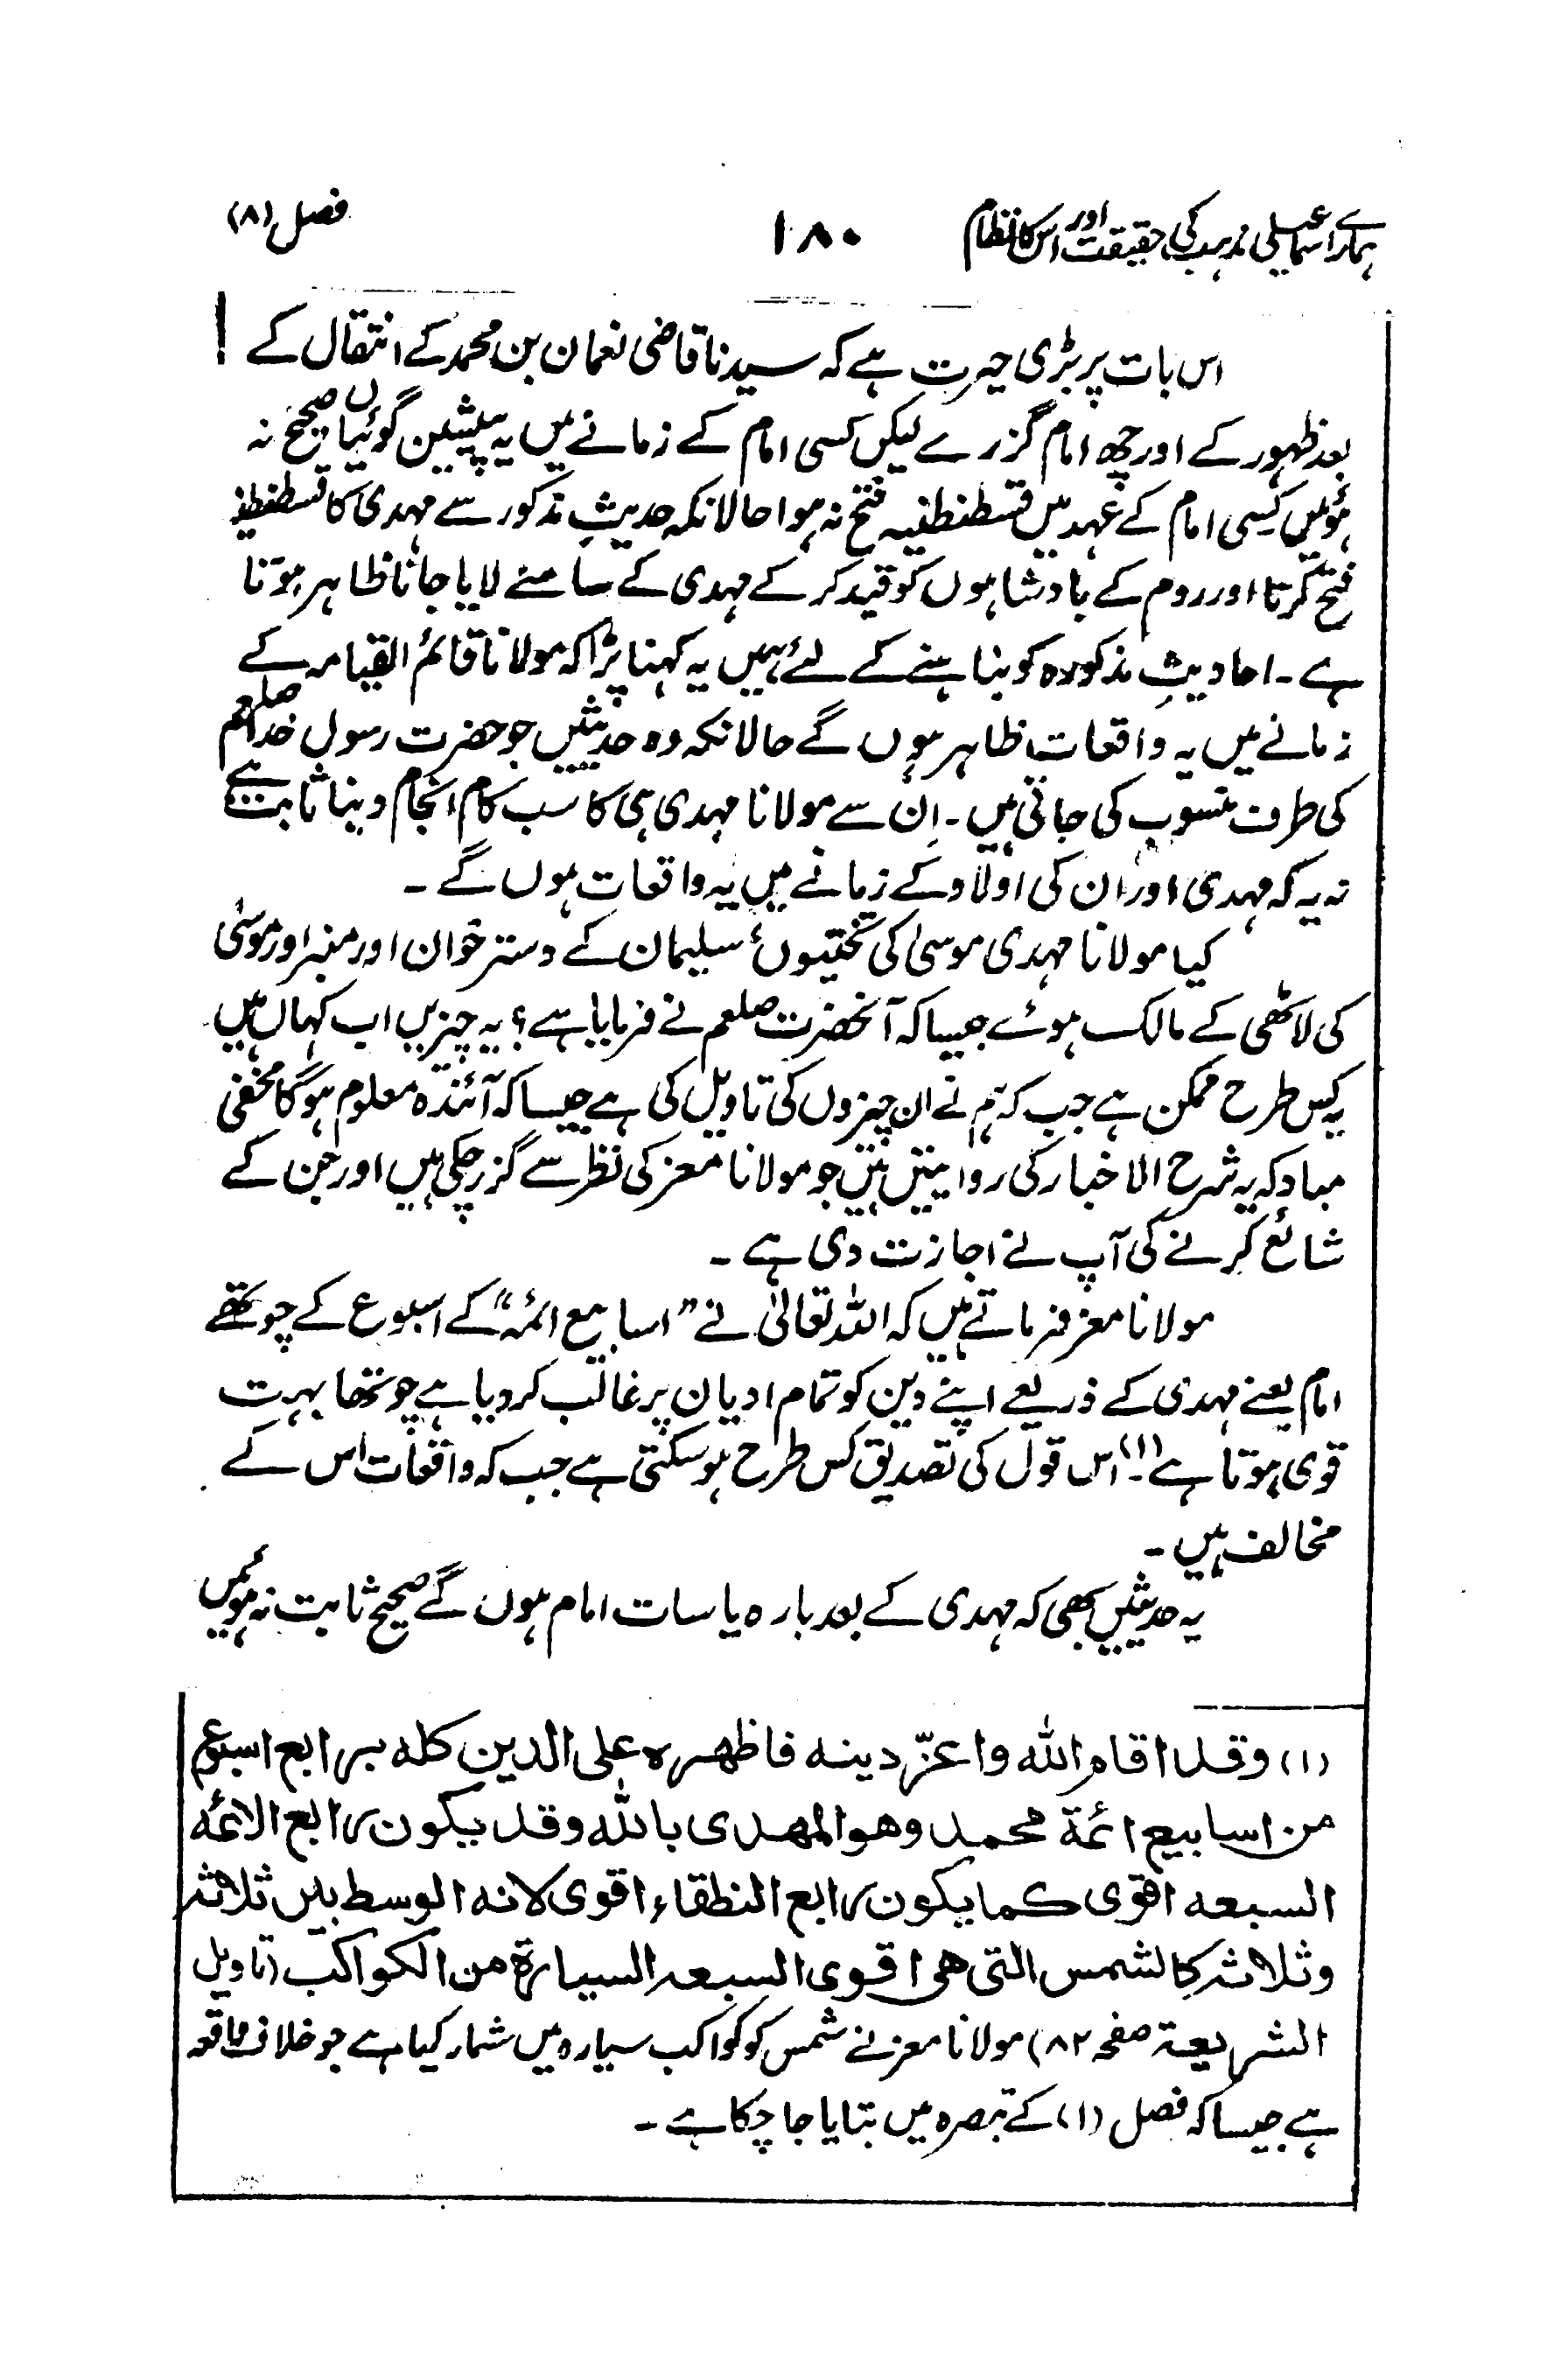 ہمارے اسماعیلی مذہب کی حقیقت اور اس کا نظام ۱۸۰ فصل (۸)
اس بات پر بڑی حیرت ہے کہ سیدنا قاضی نعمان بن محمد کے انتقال کے
بعد ظہور کے اور چھ امام گزرے لیکن کسی امام کے زمانے میں یہ پیشین گوئیاں صحیح نہ
ہوئیں کسی امام کے عہد میں قسطنطنیہ فتح نہ ہوا حالانکہ حدیثِ مذکور سے مہدی کا قسطنطنیہ
فتح کرنا اور روم کے بادشاہوں کو قید کر کے مہدی کے سامنے لایا جانا ظاہر ہوتا
ہے۔ احادیثِ مذکورہ کو بناہنے کے لئے ہمیں یہ کہنا پڑا کہ مولانا قائم القیامہ کے
زمانے میں یہ واقعات ظاہر ہوں گے حالانکہ وہ حدیثیں جو حضرت رسول خدا صلعم
کی طرف منسوب کی جاتی ہیں۔ اِن سے مولانا مہدی ہی کا سب کام انجام دینا ثابت ہے
نہ یہ کہ مہدی اور ان کی اولاد کے زمانے میں یہ واقعات ہوں گے۔
کیا مولانا مہدی موسیٰ کی تختیوں سلیمان کے دسترخوان اور منبر اور موسیٰ
کی لاٹھی کے مالک ہوئے جیسا کہ آنحضرت صلعم نے فرمایا ہے؟ یہ چیزیں اب کہاں ہیں
یہ کس طرح ممکن ہے جب کہ ہم نے ان چیزوں کی تاویل کی ہے جیسا کہ آئندہ معلوم ہوگا مخفی
مباد کہ یہ شرح الاخبار کی روایتیں ہیں جو مولانا معز کی نظر سے گزر چکی ہیں اور جن کے
شائع کرنے کی آپ نے اجازت دی ہے۔
مولانا معز فرماتے ہیں کہ اللہ تعالیٰ نے "اسابیع ائمہ" کے اسبوع کے چوتھے
امام یعنے مہدی کے ذریعے اپنے دین کو تمام ادیان پر غالب کر دیا ہے چوتھا بہت
قوی ہوتا ہے۔(۱) اس قول کی تصدیق کس طرح ہو سکتی ہے جب کہ واقعات اس کے
مخالف ہیں۔
یہ حدیثیں بھی کہ مہدی کے بعد بارہ یا سات امام ہوں گے صحیح ثابت نہ ہوئیں
(۱) وقد اقام الله واعزّ دينه فاظهره على الدين كله برابع اسبوع
من اسابيع ائمة محمد وهو المهدى بالله وقد يكون رابع الائمه
السبعه اقوى كما يكون رابع النطقاء اقوى لانه الوسط بين ثلاثه
وثلاثه كالشمس التى هى اقوى السبعه السيارة من الكواكب (تاویل
الشریعۃ صفحہ ۸۲) مولانا معز نے شمس کو کواکب سیارہ میں شمار کیا ہے جو خلاف واقعہ
ہے جیسا کہ فصل (۱) کے تبصرہ میں بتایا جا چکا ہے۔